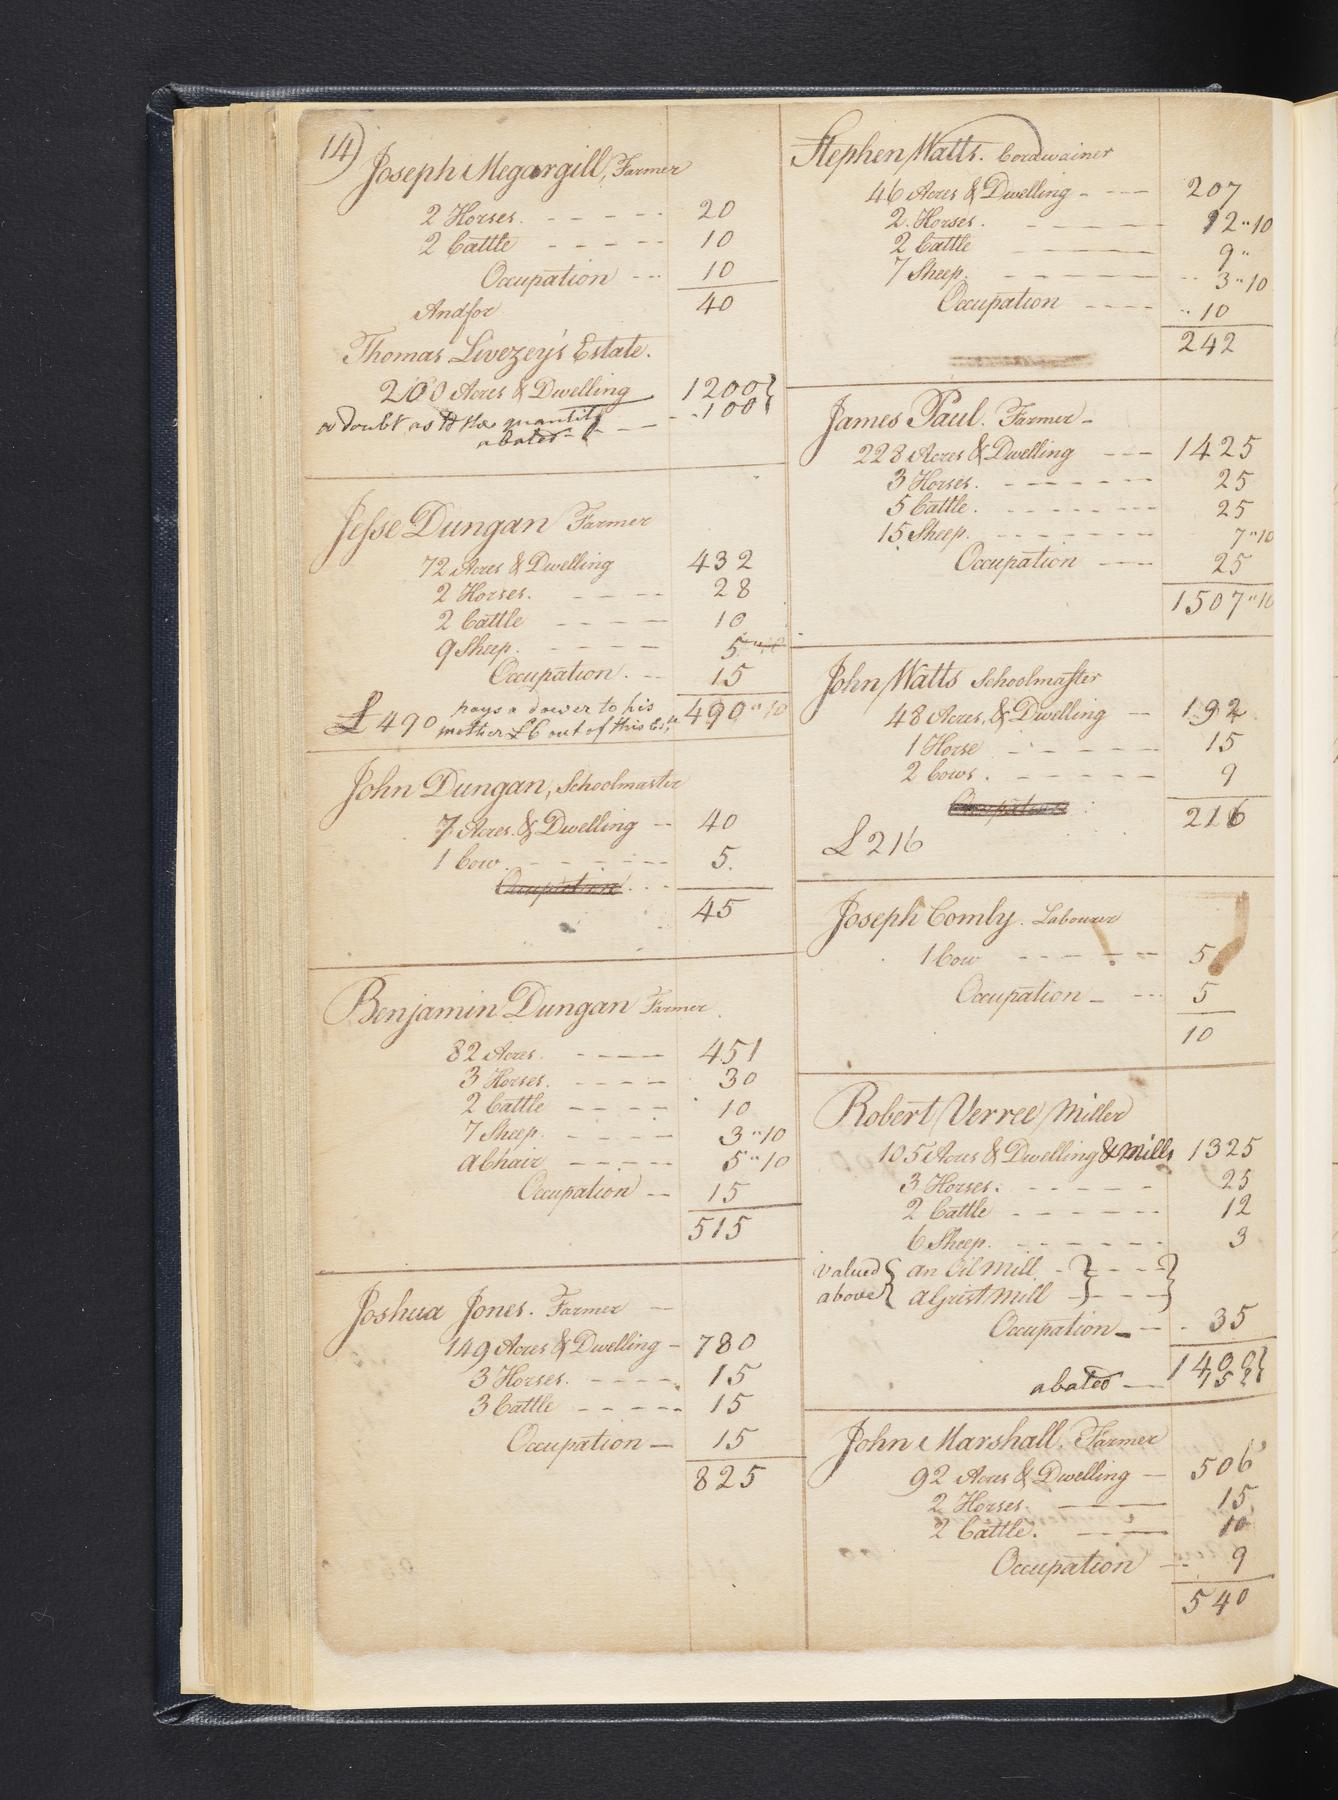 14)
Joseph Megargill, Farmer
2 Horses. - - - - - 20
2 Cattle - - - - - 10
Occupation - - - 10
40
And for
Thomas Livezey's Estate.
200 Acres & Dwelling 1200
a doubt as to the quantity
abated - 100
Jesse Dungan Farmer
72 Acres & Dwelling 432
2 Horses. - - - - 28
2 Cattle - - - - 10
9 Sheep. - - - - 5 "10
Occupation. - - 15
490 "10
£490 pays a dower to his
mother £6 out of this Est.
John Dungan, Schoolmaster
7 Acres & Dwelling - 40
1 Cow - - - - - 5.
Occupation - - -
45
Benjamin Dungan Farmer
82 Acres. - - - - 451
3 Horses. - - - - 30
2 Cattle - - - - 10
7 Sheep. - - - - 3 "10
a Chair - - - - 5 "10
Occupation - - 15
515
Joshua Jones. Farmer
149 Acres & Dwelling - 780
3 Horses. - - - - 15
3 Cattle - - - - - 15
Occupation - 15
825
Stephen Watts. Cordwainer
46 Acres & Dwelling - - - 207
2 Horses. - - - - - 12 "10
2 Cattle - - - - 9 "
7 Sheep. - - - - - 3 "10
Occupation - - - - 10
242
James Paul. Farmer -
228 Acres & Dwelling - - - 1425
3 Horses. - - - - - - 25
5 Cattle. - - - - - - 25
15 Sheep. - - - - - - 7 "10
Occupation - - - 25
1507 "10
John Watts Schoolmaster
48 Acres, & Dwelling - 192
1 Horse - - - - - 15
2 Cows. - - - - - 9
Occupation
216
£216
Joseph Comly. Labourer
1 Cow - - - - - 5
Occupation - - - - 5
10
Robert Verree Miller
105 Acres & Dwelling & Mills 1325
3 Horses. - - - - - 25
2 Cattle - - - - - 12
6 Sheep. - - - - - 3
valued { an Oil Mill - } - - - }
above { a Grist Mill - } - - - }
Occupation - - - 35
1400
abated - 75
John Marshall. Farmer
92 Acres & Dwelling - 506
2 Horses. - - - 15
2 Cattle. - - - 10
Occupation - - 9
540